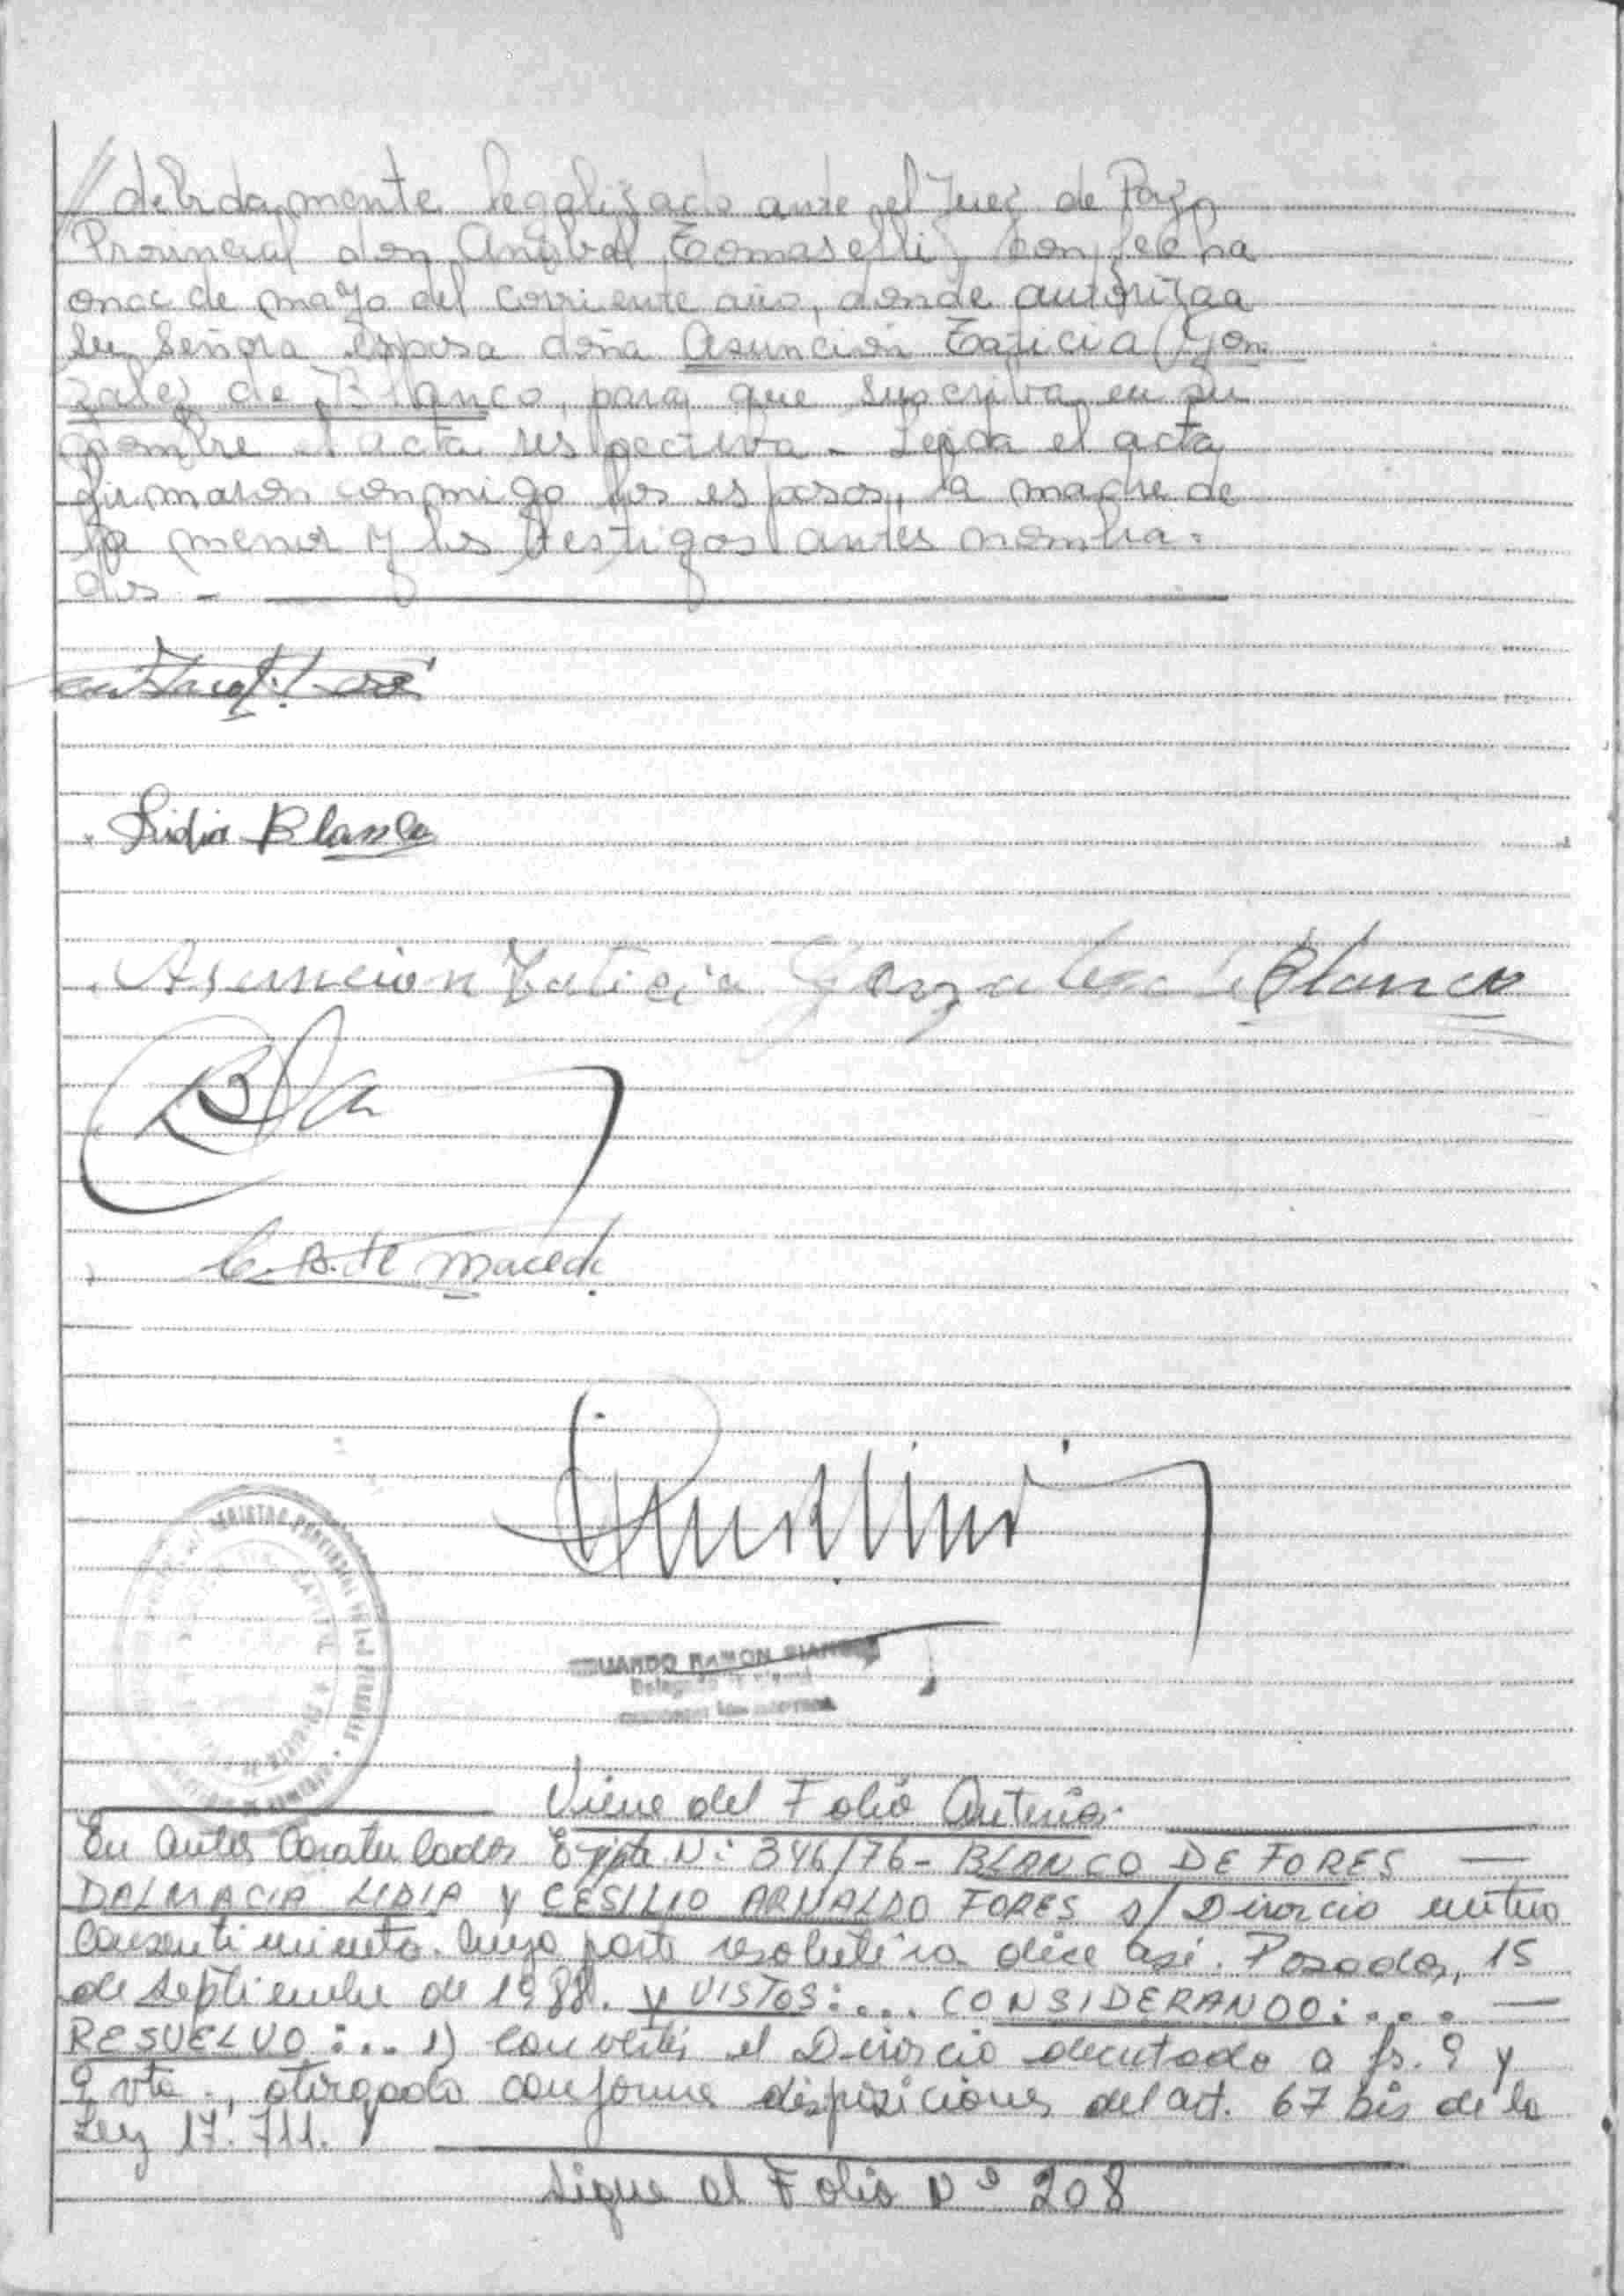 // debidamente legalizado ante el Juez de Paz
Provincial don Anibal Tomaselli, con fecha
once de mayo del corriente año, donde autoriza a
su Señora esposa doña Asunción Taticia Gon
zalez de Blanco, para que suscriba en su
nombre el acta respectiva - Leida el acta
firmaron conmigo los esposos, la madre de
la menor y los testigos antes nombra=
dos -
Lidia Blanco
Asuncion Taticia Gonzalez de Blanco
Bla
C. B. de Maced
REGISTRO PROVINCIAL DE LAS PERSONAS
EDUARDO RAMON
Viene del Folio Anterior
En autos Caratulados Expte. N: 346/76 - BLANCO DE FORES —
DALMACIA LIDIA Y CESILIO ARNALDO FORES s/ Divorcio mutuo
Consentimiento. Cuya parte resolutiva dice así. Posadas, 15
de Septiembre de 1988. Y VISTOS:... CONSIDERANDO:... —
RESUELVO:... 1) Convertir el Divorcio decretado a fs. 9 y
9 vta., otorgado conforme disposiciones del art. 67 bis de la
Ley 17.711.
Sigue al Folio Nº 208